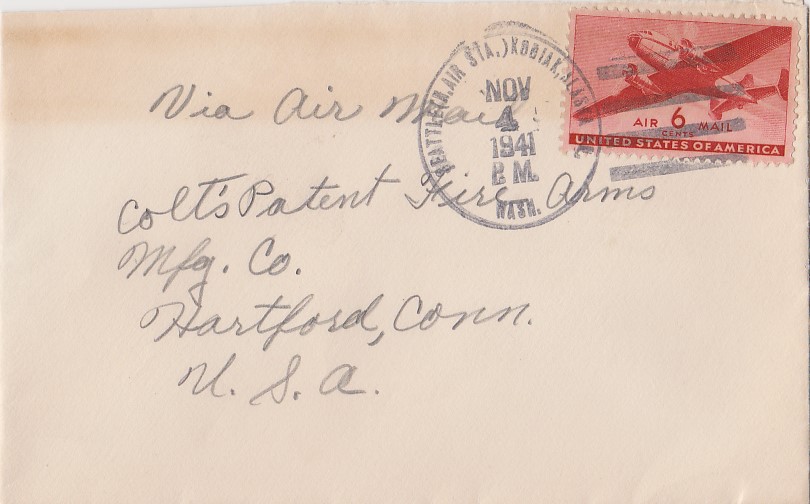 SEATTLE (N. AIR STA.) KODIAK, ALASKA
NOV
4
1941
P. M.
WASH.
AIR 6 MAIL
CENTS
UNITED STATES OF AMERICA
Via Air Mail
Colt's Patent Fire Arms
Mfg. Co.
Hartford, Conn.
U. S. A.